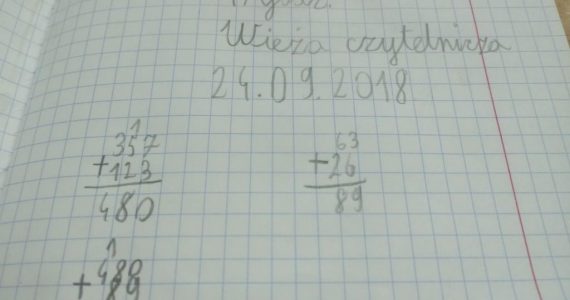 Wieża czytelnicza
24.09.2018
1
357
+123
480
63
+26
89
1
480
+ 89